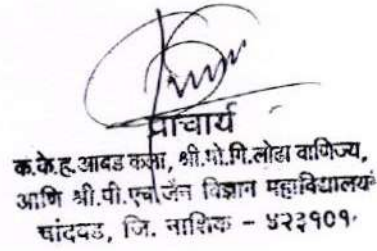 प्राचार्य
क.के.ह.आबड कला, श्री.मो.गि.लोढा वाणिज्य,
आणि श्री.पी.एच.जैन विज्ञान महाविद्यालय
चांदवड, जि. नाशिक - ४२३१०१.